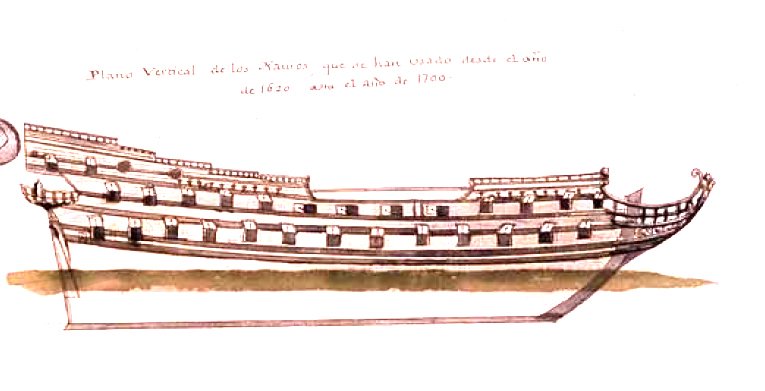 Plano Vertical de los Navios, que se han usado desde el año
de 1620 asta el año de 1700.